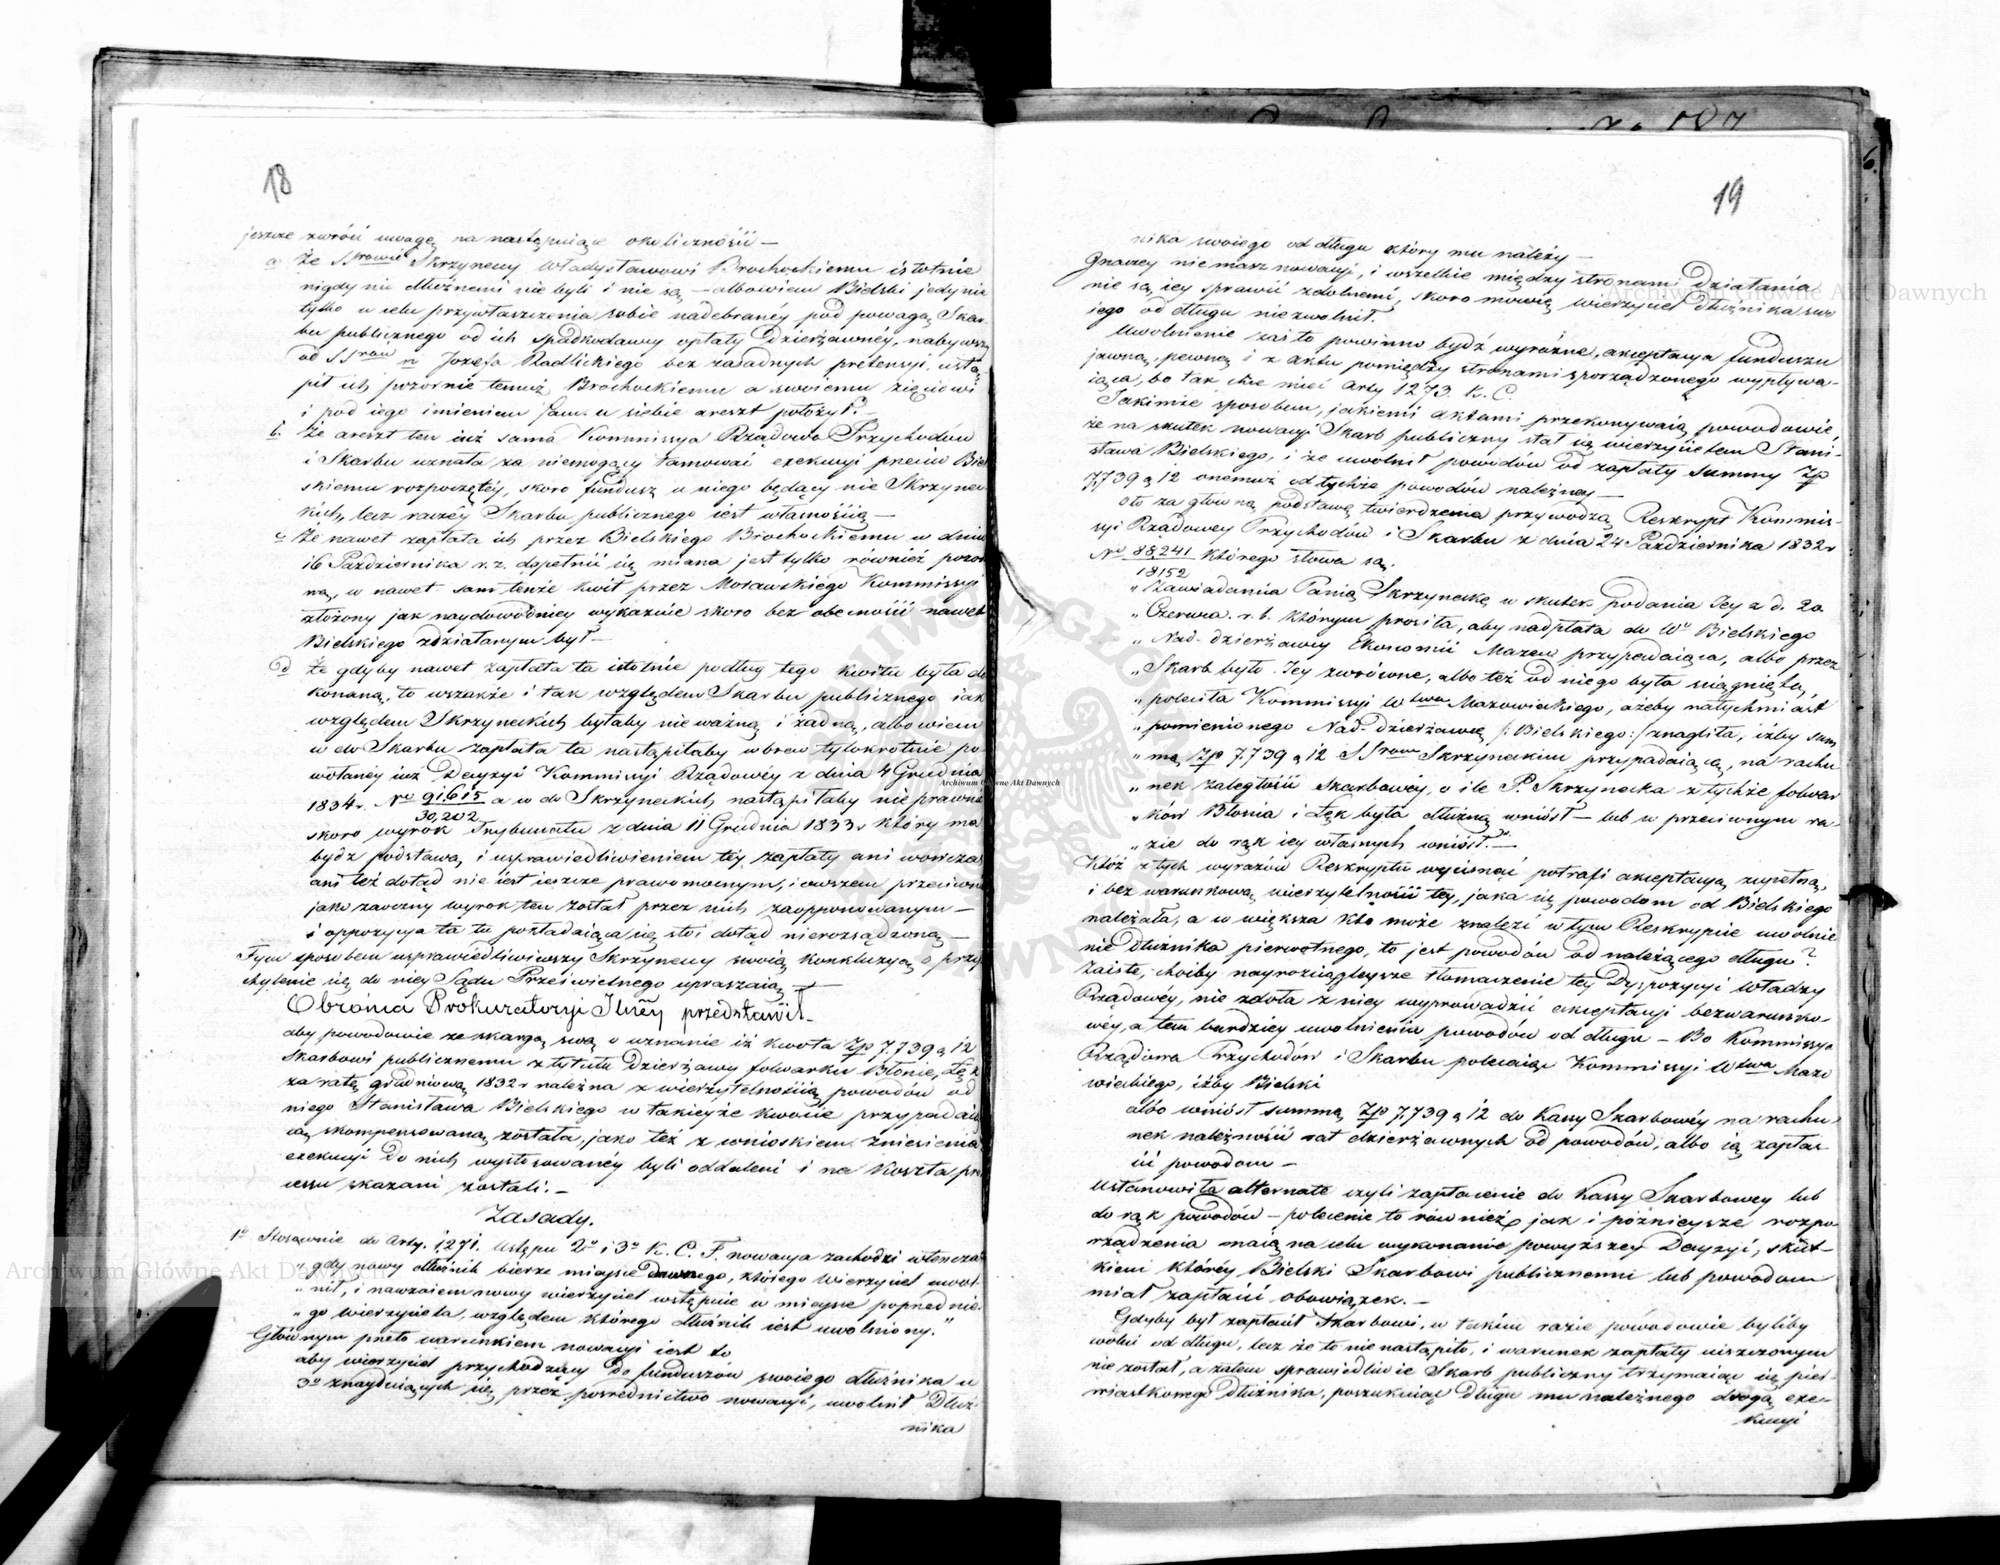 18
jeszcze zwrócić uwagę na następuiące okoliczności —
a. Że SSrowie Skrzyneccy Władysławowi Brochockiemu istotnie
nigdy nie dłużnemi nie byli i nie są — albowiem Bielski jedynie
tylko w celu przywłaszczenia sobie nadebranéy pod powagą Skar-
bu publicznego od ich spadkodawcy opłaty Dzierżawnéy, nabywszy
od SSrów Józefa Radlickiego bez zasadnych pretensyi, ustą-
pił ich pozornie temuż Brochockiemu a swoiemu zięciowi
i pod iego imieniem sam u siebie areszt położył. —
b. Że areszt ten iuż sama Kommissya Rządowa Przychodów
i Skarbu uznała za niemogący tamować exekucyi przeciw Biel
skiemu rozpoczętéy, skoro fundusz u niego będący nie Skrzynec
kich, lecz raczéy Skarbu publicznego iest własnością —
c. Że nawet zapłata ich przez Bielskiego Brochockiemu w dniu
16 Października r. z. dopełnić się miana jest tylko również pozor
ną, w nawet sam tenże kwit przez Morawskiego Kommissyi
złożony jak naydowodniey wykazuie skoro bez obecności nawet
Bielskiego zdziałanym był —
d Że gdyby nawet zapłata ta istotnie podług tego kwitu była do
konaną, to wszakże i tak względem Skarbu publicznego iak
względem Skrzyneckich byłaby nie ważną i żadną, albowiem
co do Skarbu zapłata ta nastąpiłaby wbrew tylokrotnie po
wołanéy iuż Decyzyi Kommissyi Rządowéy z dnia 4 Grudnia
1834 r. No 91.615 a co do Skrzyneckich nastąpiłaby nieprawnie
30,202
skoro wyrok Trybunału z dnia 11 Grudnia 1833 r który ma
bydź podstawą i usprawiedliwieniem téy zapłaty ani wówczas
ani też dotąd nie iest ieszcze prawomocnym, i owszem przeciwnie
jako zaoczny wyrok ten został przez nich zaopponowanym —
i oppozycya ta tu pokładaiąca się stoi dotąd nierozsądzoną —
Tym sposobem usprawiedliwiwszy Skrzyneccy swoią konkluzyą o przy
chylenie się do niey Sądu Prześwietnego upraszaią —
Obrońca Prokuratoryi Jlnéy przedstawił —
aby powodowie ze skargą swą o uznanie iż kwota Złp 7.739 g 12
Skarbowi publicznemu z tytułu Dzierżawy folwarku Błonie, Łęk
za ratę grudniową 1832 r należna z wierzytelnością powodów od
niego Stanisława Bielskiego w takieyże kwocie przypadaią
cą skompensowaną została, jako też z wnioskiem zniesienia
exekucyi do nich wystosowanéy byli oddaleni i na koszta pro
cessu skazani zostali. —
Zasady.
1o Stosownie do Arty. 1271. ustępu 2o i 3o K. C. F. nowacya zachodzi wtenczas
„ gdy nowy dłużnik bierze mieysce dawnego, którego wierzyciel uwol-
„ nił, i nawzaiem nowy wierzyciel wstępuie w mieysce poprzednie-
„ go wierzyciela, względem którego dłużnik iest uwolniony.”
Głównym przeto warunkiem nowacyi iest to
aby wierzyciel przychodzący do funduszów swoiego dłużnika u
3o znayduiących się, przez pośrednictwo nowacyi, uwolnił Dłuż-
nika
19
nika swoiego od długu który mu należy —
Jnaczey nie masz nowacyi, i wszelkie między stronami Działania
nie są iey sprawić zdolnemi, skoro mówię wierzyciel dłużnika swo
iego od długu nie zwolnił.
Uwolnienie zaś to powinno bydź wyraźne, akceptacya funduszu
jawną, pewną i z aktu pomiędzy stronami sporządzonego wypływa-
iąca, bo tak chce mieć Arty 1273. K. C.
Jakimże sposobem, jakiemi aktami przekonywaią powodowie,
że na skutek nowacyi Skarb publiczny stał się wierzycielem Stani-
sława Bielskiego, i że uwolnił powodów od zapłaty summy Złp
7.739 g 12 onemuż od tychże powodów należney —
Oto za główną podstawę twierdzenia przywodzą Reskrypt Kommis-
syi Rządowey Przychodów i Skarbu z dnia 24 Października 1832 r
No 88,241 którego słowa są.
18152
„ Zawiadamia Panią Skrzynecką w skutek podania Jey z d. 20
„ Czerwca r. b. którym prosiła, aby nadpłata do Wo Bielskiego
„ Nad-dzierżawcy Ekonomii Mazew przypadaiąca, albo przez
„ Skarb była Jey zwrócone, albo też od niego była ściągnięta,
„ poleciła Kommissyi Wtwa Mazowieckiego, ażeby natychmiast
„ pomienionego Nad-dzierżawcę /: Bielskiego :/ znagliła, iżby sum
„ mę Złp 7.739 g 12 SSrom Skrzyneckim przypadaiącą, na rachu
„ nek zaległości skarbowéy, o ile P. Skrzynecka z tychże folwar
„ ków Błonia i Łęk była dłużną wniósł — lub w przeciwnym ra-
„ zie do rąk iey własnych wniósł.” —
Któż z tych wyrazów Reskryptu wycisnąć potrafi akceptacyą zupełną,
i bez warunkową wierzytelności téy, jaka się powodom od Bielskiego
należała, a co większa kto może znaleźć w tym Reskrypcie uwolnie
nie dłużnika pierwotnego, to jest powodów od należącego długu?
Zaiste, choćby nayrozciągleysze tłomaczenie téy Dyspozycyi Władzy
Rządowéy, nie zdoła z niey wyprowadzić akceptacyi bezwarunko-
wéy, a tem bardziey uwolnienia powodów od długu — Bo Kommissya
Rządowa Przychodów i Skarbu polecaiąc Kommissyi Wtwa Mazo
wieckiego, iżby Bielski
albo wniósł summę Złp 7.739 g 12 do Kassy Skarbowéy na rachu-
nek należności rat dzierżawnych od powodów, albo ią zapła-
cił powodom —
Ustanowiła alternatę czyli zapłacenie do Kassy Skarbowey lub
do rąk powodów — polecenie to również jak i późnieysze rozpo-
rządzenia maią na celu wykonanie powyższey Decyzyi, skut-
kiem któréy Bielski Skarbowi publicznemu lub powodom
miał zapłacić obowiązek. —
Gdyby był zapłacił Skarbowi, w takim razie powodowie byliby
wolni od długu, lecz że to nie nastąpiło, i warunek zapłaty uiszczonym
nie został, a zatem sprawiedliwie Skarb publiczny trzymaiąc się pier-
wiastkowego Dłużnika, poszukuiąc długu mu należnego drogą exe-
kucyi
Archiwum Główne Akt Dawnych
Archiwum Główne Akt Dawnych
Archiwum Główne Akt Dawnych